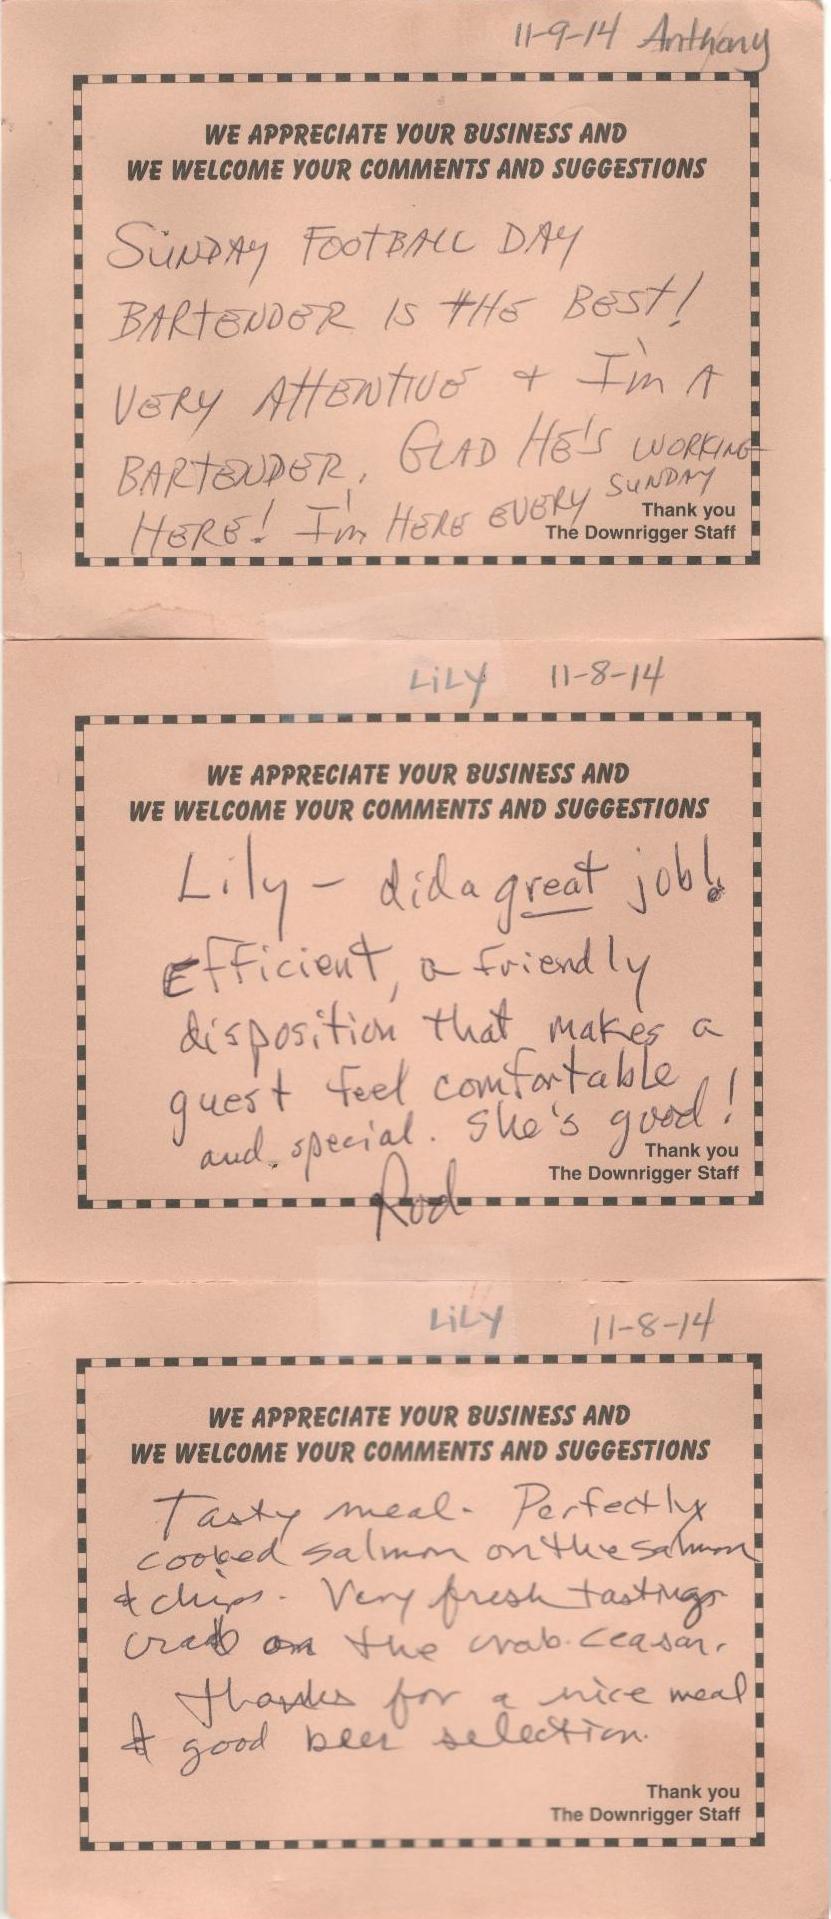 11-9-14 Anthony
WE APPRECIATE YOUR BUSINESS AND
WE WELCOME YOUR COMMENTS AND SUGGESTIONS
SUNDAY FOOTBALL DAY
BARTENDER IS THE BEST!
VERY ATTENTIVE + I'm A
BARTENDER. GLAD HE'S WORKING
HERE! I'm HERE EVERY SUNDAY
Thank you
The Downrigger Staff
LiLY 11-8-14
WE APPRECIATE YOUR BUSINESS AND
WE WELCOME YOUR COMMENTS AND SUGGESTIONS
Lily – did a great job!
Efficient, a friendly
disposition that makes a
guest feel comfortable
and special. She's good!
Thank you
The Downrigger Staff
Rod
LiLY 11-8-14
WE APPRECIATE YOUR BUSINESS AND
WE WELCOME YOUR COMMENTS AND SUGGESTIONS
Tasty meal. Perfectly
cooked salmon on the salmon
& chips. Very fresh tasting
crab on the crab ceasar.
Thanks for a nice meal
& good beer selection.
Thank you
The Downrigger Staff